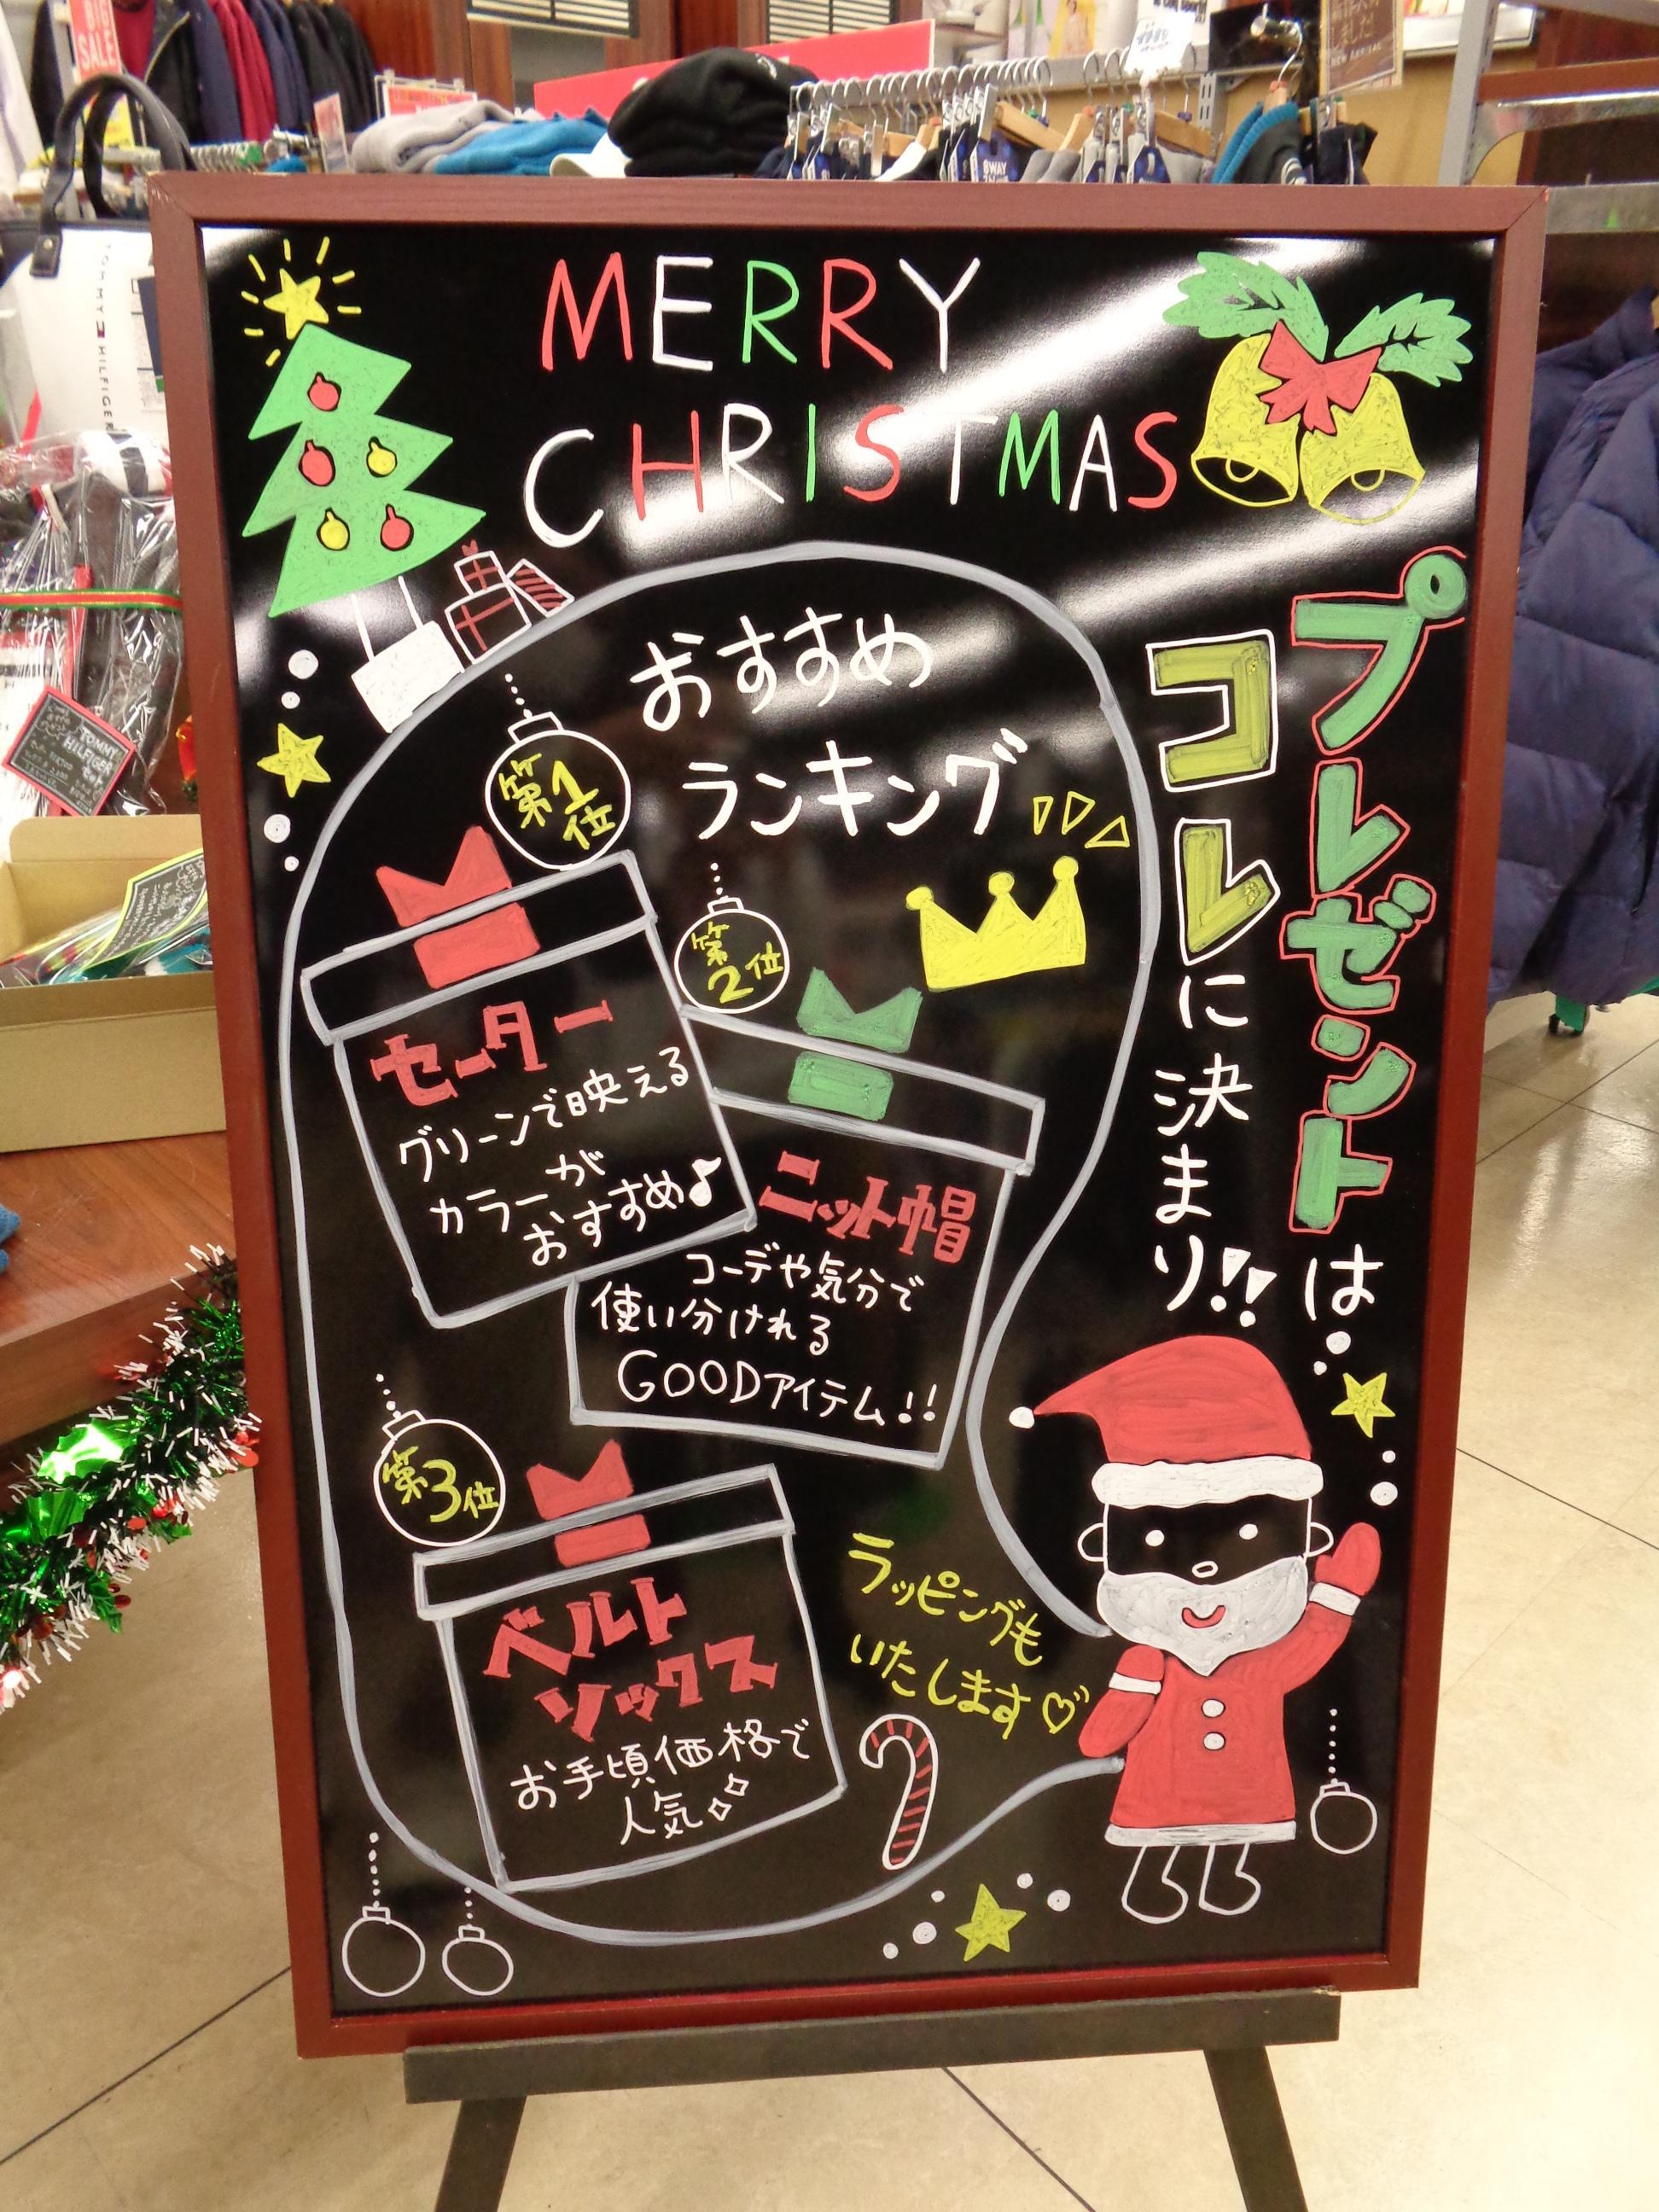 MERRY
CHRISTMAS
プレゼントは
コレに決まり!!
おすすめ
ランキング
第1位
セーター
グリーンで映える
カラーが
おすすめ♪
第2位
ニット帽
コーデや気分で
使い分けれる
GOODアイテム!!
第3位
ベルト
ソックス
お手頃価格で
人気
ラッピングも
いたします♡
BIG
SALE
TOMMY HILFIGER
TOMMY
HILFIGER
NEW ARRIVAL